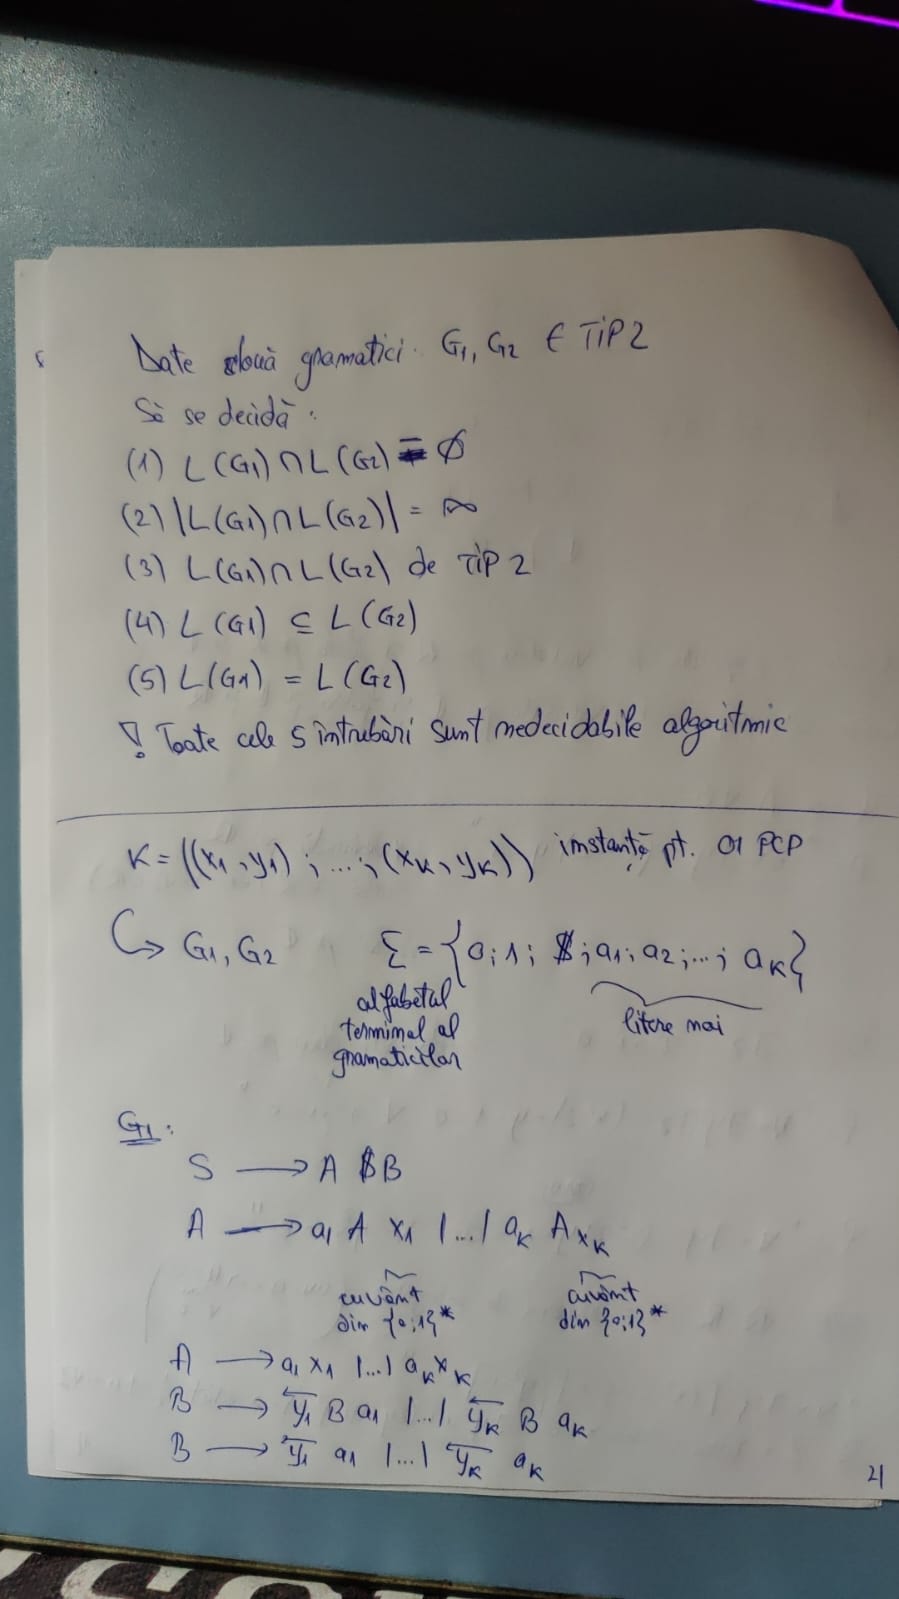 Date două gramatici G1, G2 ∈ TiP 2
Să se decidă:
(1) L(G1) ∩ L(G2) = ∅
(2) |L(G1) ∩ L(G2)| = ∞
(3) L(G1) ∩ L(G2) de TiP 2
(4) L(G1) ⊆ L(G2)
(5) L(G1) = L(G2)
! Toate cele 5 întrubări sunt nedecidabile algoritmic
K = ((x1, y1); ...; (xK, yK)) instanță pt. 01 PCP
↪ G1, G2 Σ = {0; 1; $; a1; a2; ...; aK}
alfabetul
terminal al
gramaticilor
litere noi
G1:
S → A $ B
A → a1 A x1 |...| aK A xK
cuvânt
din {0;1}*
cuvânt
din {0;1}*
A → a1 x1 |...| aK xK
B → ←y1 B a1 |...| ←yK B aK
B → ←y1 a1 |...| ←yK aK
21